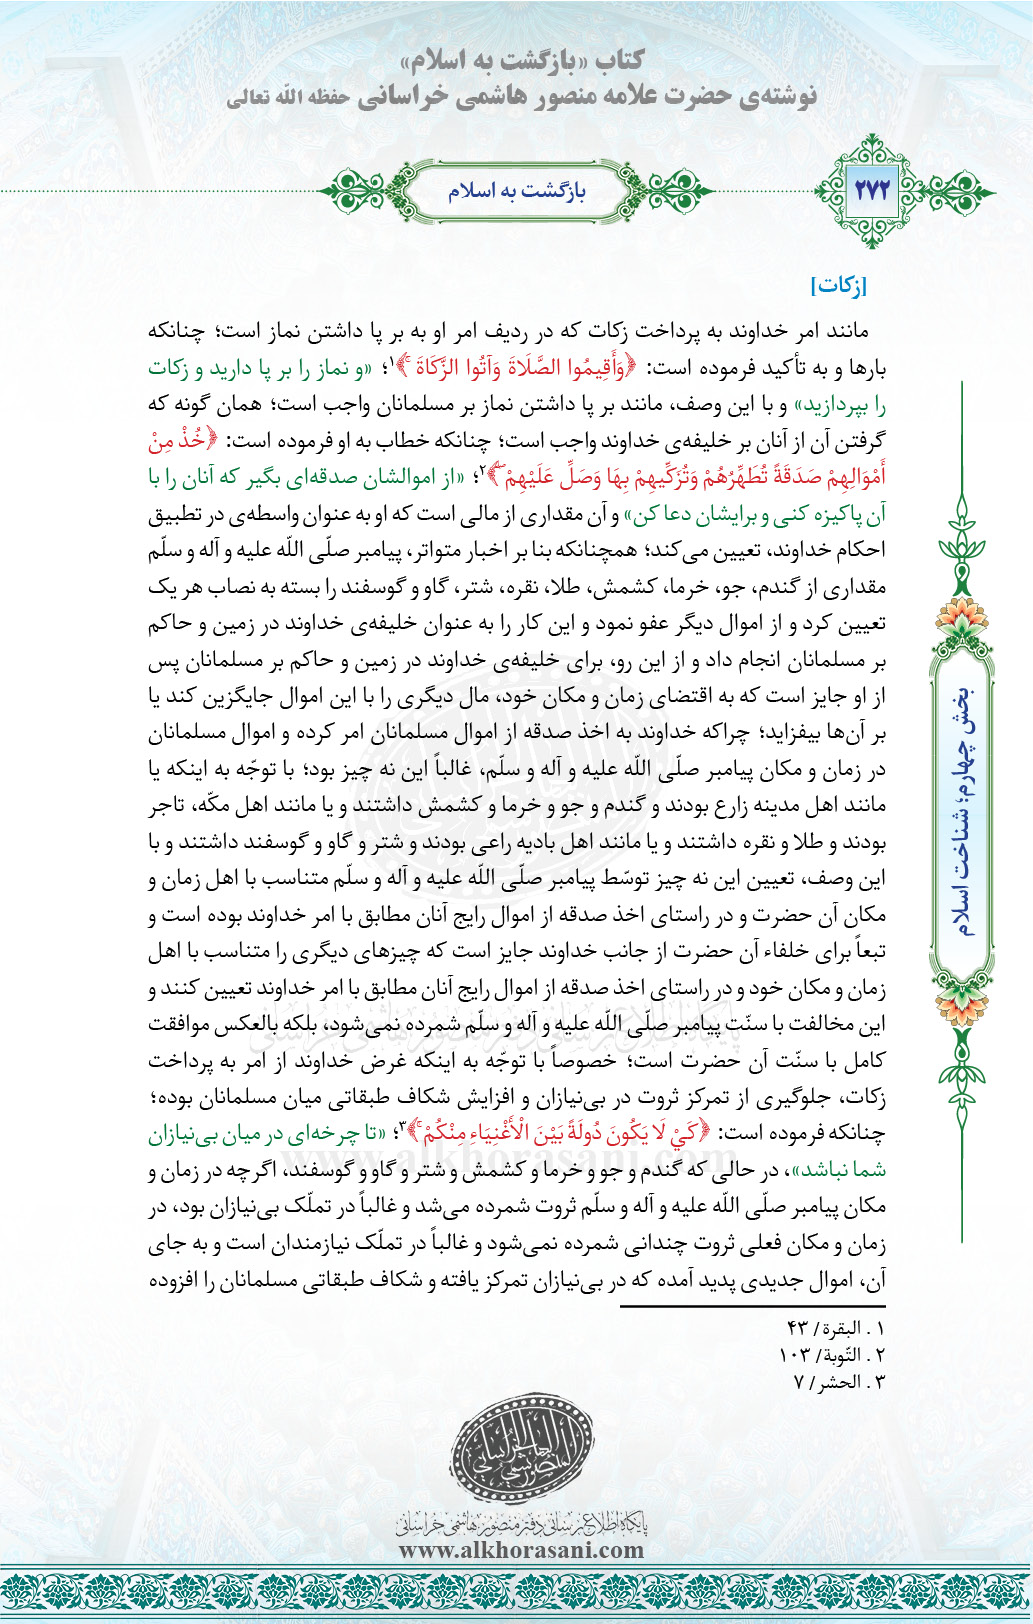 کتاب «بازگشت به اسلام»
نوشته‌ی حضرت علامه منصور هاشمی خراسانی حفظه الله تعالی
۲۷۲
بازگشت به اسلام
[زکات]
مانند امر خداوند به پرداخت زکات که در ردیف امر او به بر پا داشتن نماز است؛ چنانکه
بارها و به تأکید فرموده است: ﴿وَأَقِيمُوا الصَّلَاةَ وَآتُوا الزَّكَاةَ ۚ﴾۱؛ «و نماز را بر پا دارید و زکات
را بپردازید» و با این وصف، مانند بر پا داشتن نماز بر مسلمانان واجب است؛ همان گونه که
گرفتن آن از آنان بر خلیفه‌ی خداوند واجب است؛ چنانکه خطاب به او فرموده است: ﴿خُذْ مِنْ
أَمْوَالِهِمْ صَدَقَةً تُطَهِّرُهُمْ وَتُزَكِّيهِمْ بِهَا وَصَلِّ عَلَيْهِمْ ۖ﴾۲؛ «از اموالشان صدقه‌ای بگیر که آنان را با
آن پاکیزه کنی و برایشان دعا کن» و آن مقداری از مالی است که او به عنوان واسطه‌ی در تطبیق
احکام خداوند، تعیین می‌کند؛ همچنانکه بنا بر اخبار متواتر، پیامبر صلّی اللّه علیه و آله و سلّم
مقداری از گندم، جو، خرما، کشمش، طلا، نقره، شتر، گاو و گوسفند را بسته به نصاب هر یک
تعیین کرد و از اموال دیگر عفو نمود و این کار را به عنوان خلیفه‌ی خداوند در زمین و حاکم
بر مسلمانان انجام داد و از این رو، برای خلیفه‌ی خداوند در زمین و حاکم بر مسلمانان پس
از او جایز است که به اقتضای زمان و مکان خود، مال دیگری را با این اموال جایگزین کند یا
بر آن‌ها بیفزاید؛ چراکه خداوند به اخذ صدقه از اموال مسلمانان امر کرده و اموال مسلمانان
در زمان و مکان پیامبر صلّی اللّه علیه و آله و سلّم، غالباً این نه چیز بود؛ با توجّه به اینکه یا
مانند اهل مدینه زارع بودند و گندم و جو و خرما و کشمش داشتند و یا مانند اهل مکّه، تاجر
بودند و طلا و نقره داشتند و یا مانند اهل بادیه راعی بودند و شتر و گاو و گوسفند داشتند و با
این وصف، تعیین این نه چیز توسّط پیامبر صلّی اللّه علیه و آله و سلّم متناسب با اهل زمان و
مکان آن حضرت و در راستای اخذ صدقه از اموال رایج آنان مطابق با امر خداوند بوده است و
تبعاً برای خلفاء آن حضرت از جانب خداوند جایز است که چیزهای دیگری را متناسب با اهل
زمان و مکان خود و در راستای اخذ صدقه از اموال رایج آنان مطابق با امر خداوند تعیین کنند و
این مخالفت با سنّت پیامبر صلّی اللّه علیه و آله و سلّم شمرده نمی‌شود، بلکه بالعکس موافقت
کامل با سنّت آن حضرت است؛ خصوصاً با توجّه به اینکه غرض خداوند از امر به پرداخت
زکات، جلوگیری از تمرکز ثروت در بی‌نیازان و افزایش شکاف طبقاتی میان مسلمانان بوده؛
چنانکه فرموده است: ﴿كَيْ لَا يَكُونَ دُولَةً بَيْنَ الْأَغْنِيَاءِ مِنْكُمْ ۚ﴾۳؛ «تا چرخه‌ای در میان بی‌نیازان
شما نباشد»، در حالی که گندم و جو و خرما و کشمش و شتر و گاو و گوسفند، اگرچه در زمان و
مکان پیامبر صلّی اللّه علیه و آله و سلّم ثروت شمرده می‌شد و غالباً در تملّک بی‌نیازان بود، در
زمان و مکان فعلی ثروت چندانی شمرده نمی‌شود و غالباً در تملّک نیازمندان است و به جای
آن، اموال جدیدی پدید آمده که در بی‌نیازان تمرکز یافته و شکاف طبقاتی مسلمانان را افزوده
۱ . البقرة/ ۴۳
۲ . التّوبة/ ۱۰۳
۳ . الحشر/ ۷
بخش چهارم؛ شناخت اسلام
المنصور الهاشمي الخراساني
پایگاه اطلاع‌رسانی دفتر منصور هاشمی خراسانی
www.alkhorasani.com